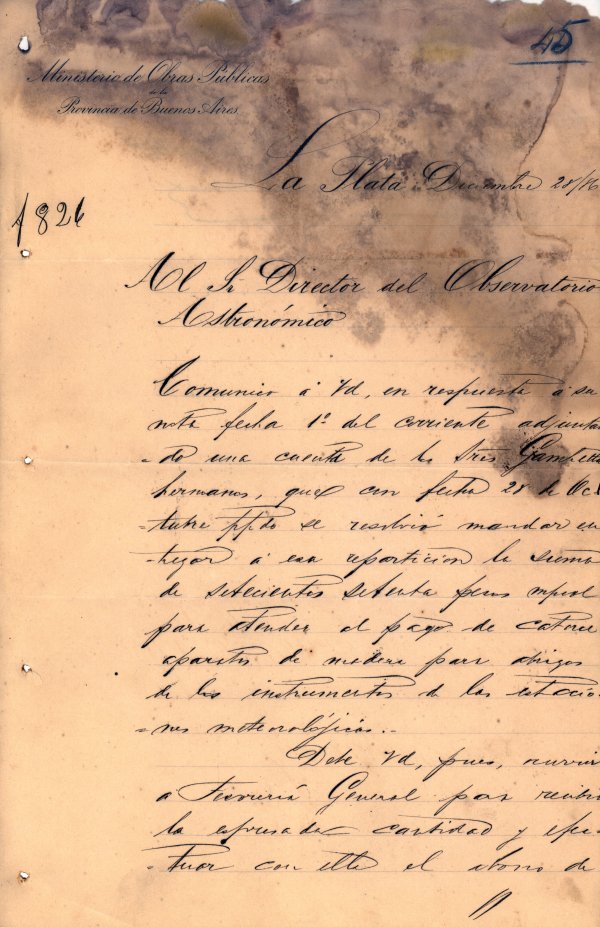 45
Ministerio de Obras Públicas
de la
Provincia de Buenos Aires
La Plata Diciembre 28/
1826
Al Sr Director del Observatorio
Astronómico
Comunico á Vd, en respuesta á su
nota fecha 1º del corriente adjuntan
-do una cuenta de los Sres
hermanos, que con fecha 28 de Oc
-tubre ppdo se resolvió mandar en
-tregar á esa reparticion la suma
de setecientos setenta pesos m/nal
para atender el pago de catorce
aparatos de madera para abrigos
de los instrumentos de las estacio
-nes meteorológicas.-
Debe Vd, pues, ocurrir
a Tesorería General para recibir
la espresada cantidad y efec
-tuar con ella el abono de